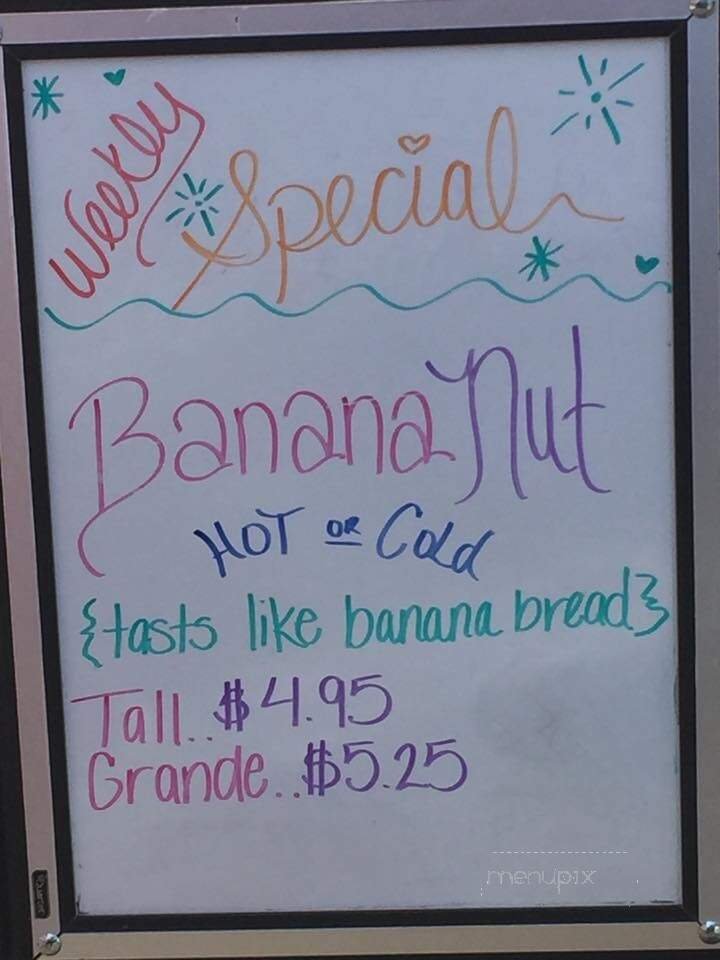 Weekly Special
Banana Nut
HOT OR Cold
{tasts like banana bread}
Tall..$4.95
Grande..$5.25
menupix
Quartet